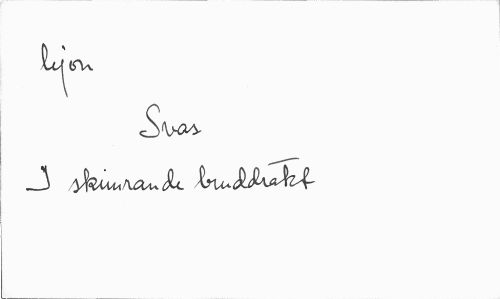 lejon
Svas
I skimrande bruddräkt